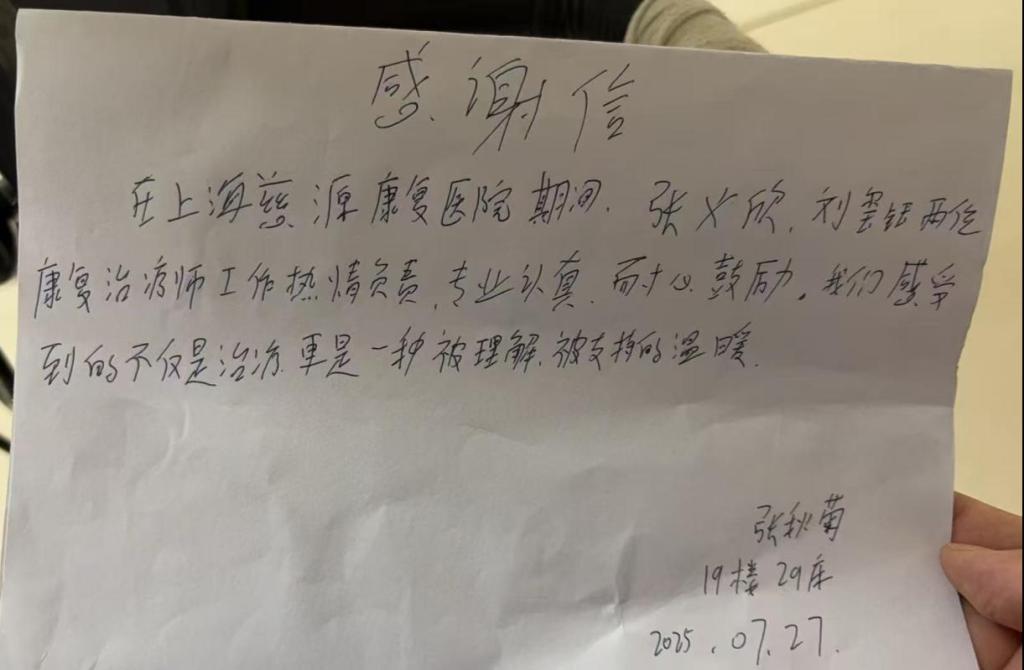 感谢信
在上海慈源康复医院期间、张义欣、刘雲钰两位
康复治疗师工作热情负责、专业认真、耐心鼓励。我们感受
到的不仅是治疗、更是一种被理解、被支持的温暖.
张秋菊
19楼 29床
2025.07.27.